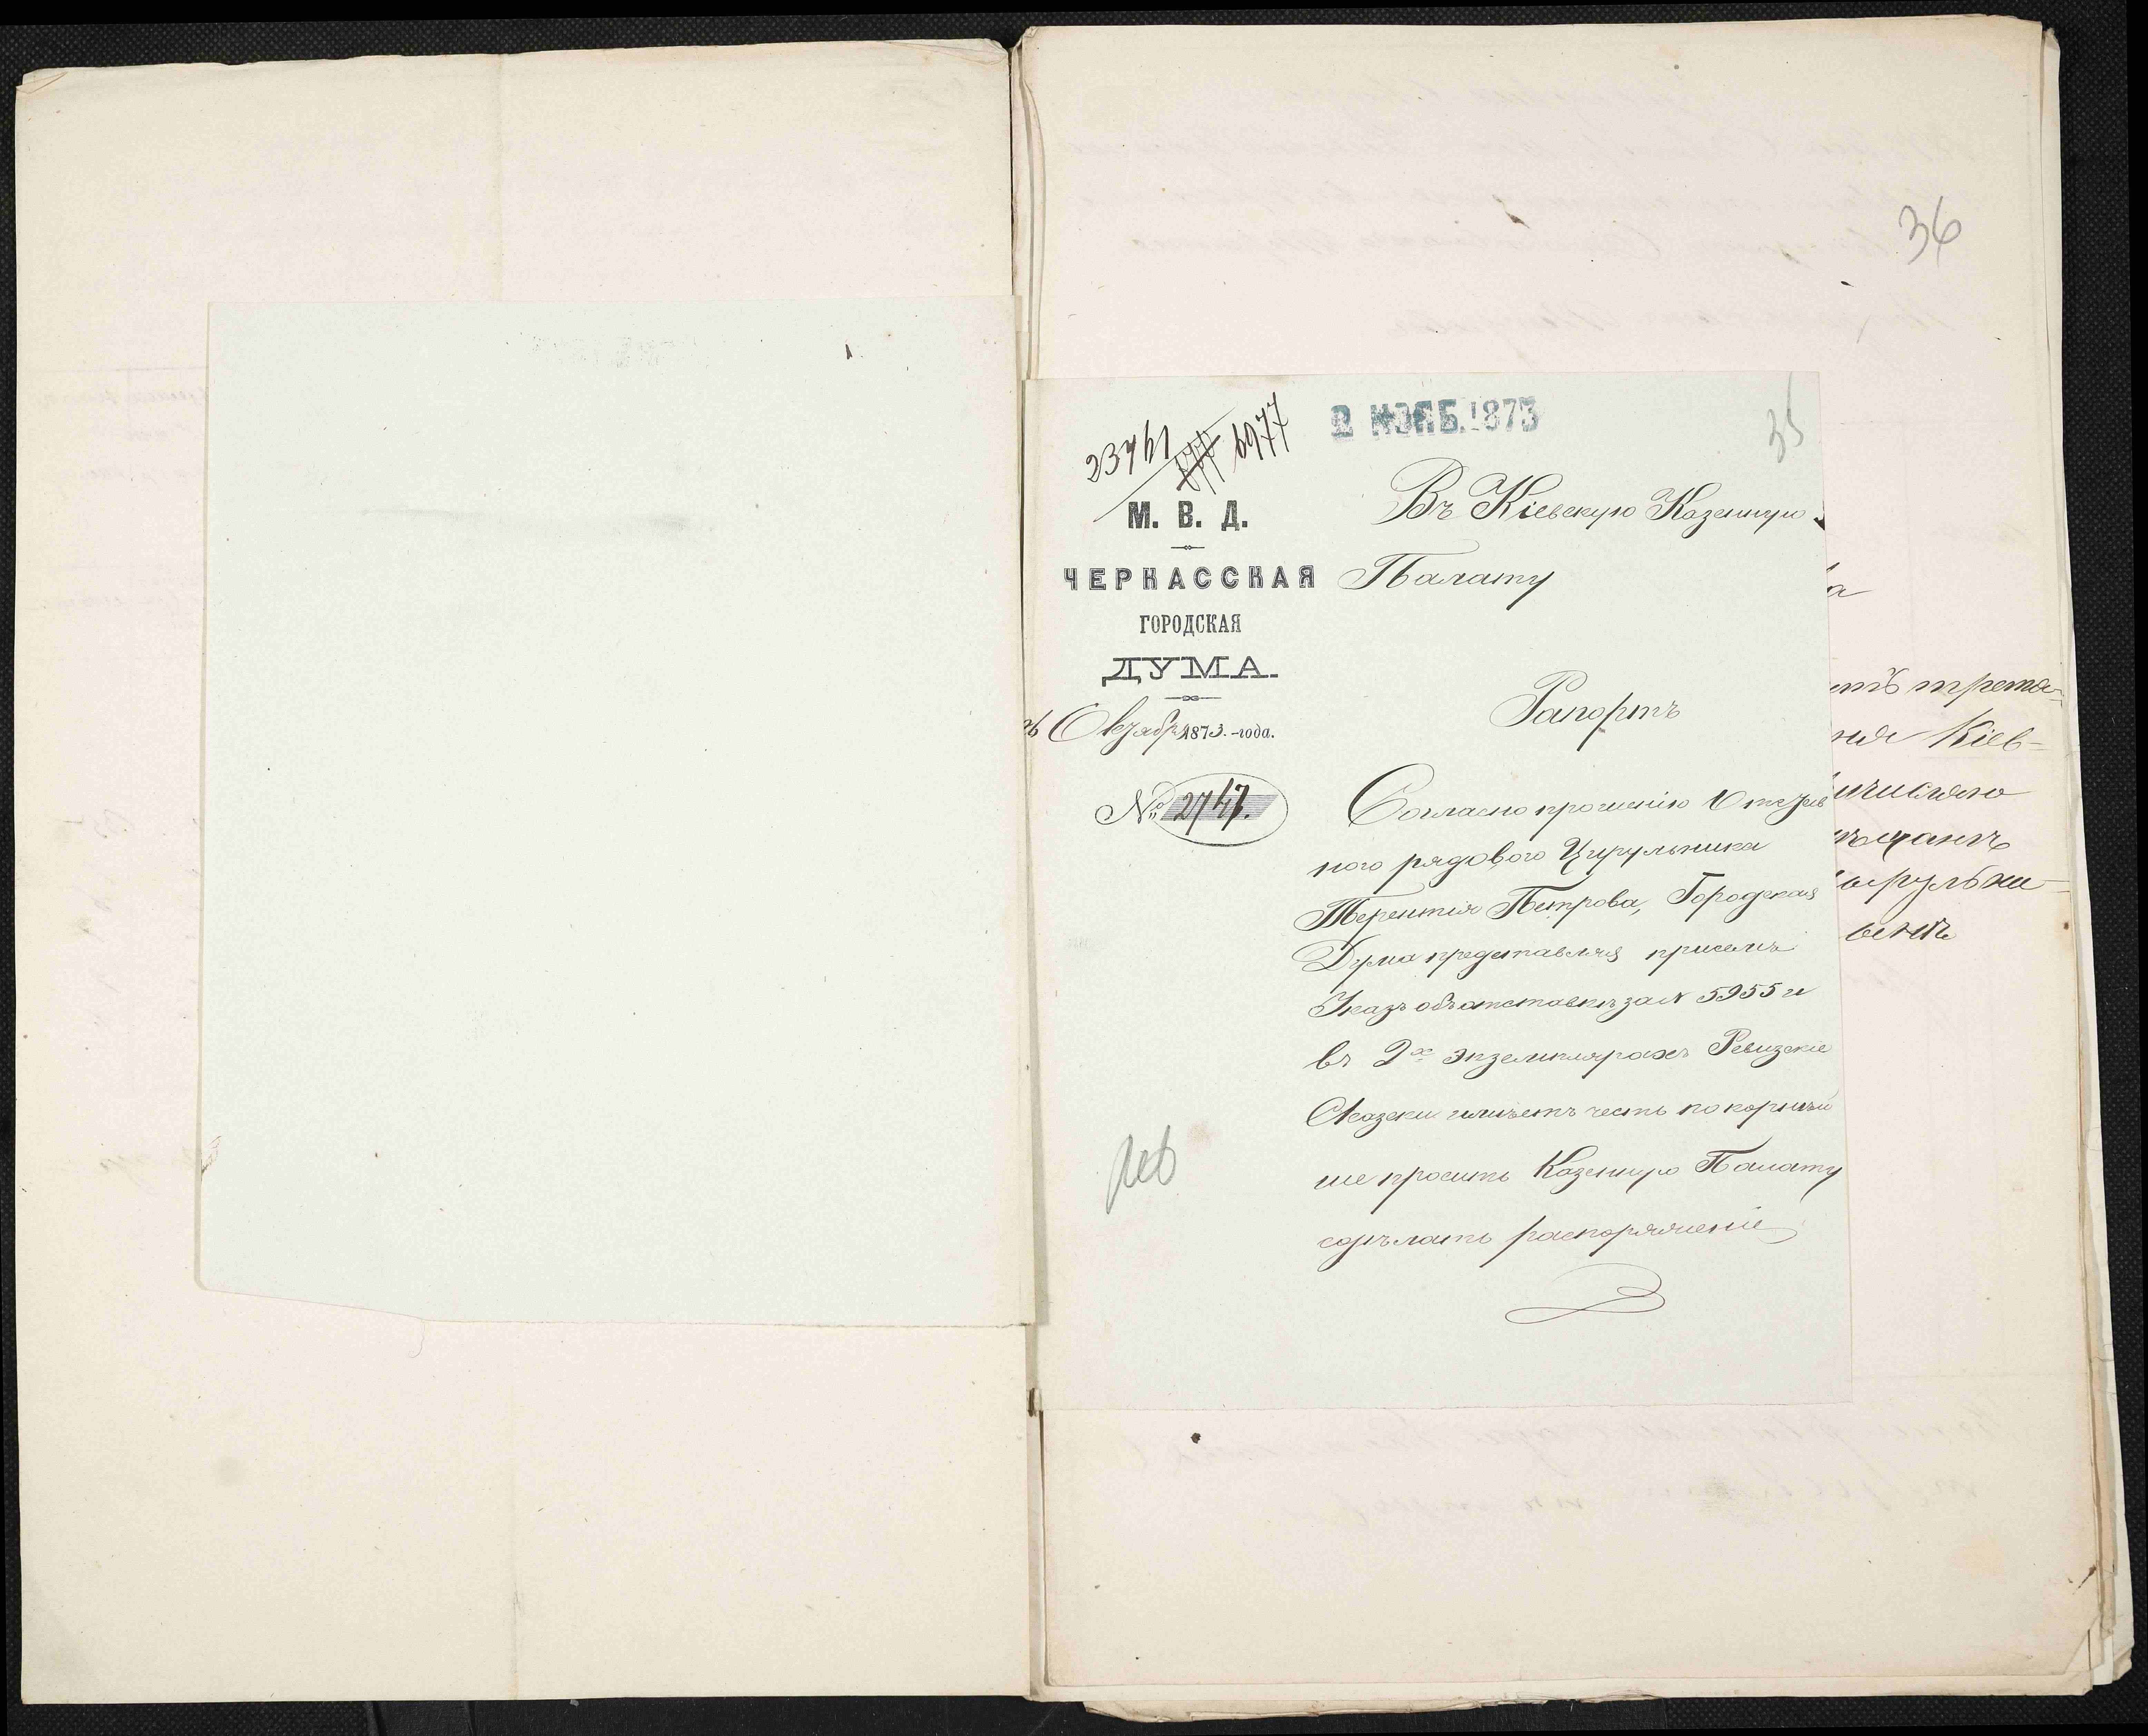 36
35
2 НОЯБ. 1873
6977
М. В. Д.
ЧЕРКАССКАЯ
ГОРОДСКАЯ
ДУМА.
Октября 1873.-года.
№ 2747.
Въ Кіевскую Казенную
Палату
Рапортъ
Согласно прошенію Отстав
ного рядового Цирульника
Терентія Петрова, Городская
Дума представляя присемъ
Указъ объ отставкѣ за № 5955 и
въ 2х экземплярахъ Ревизскіе
Сказски имѣетъ честь покорнѣй
ше просить Казенную Палату
сдѣлать распоряженіе
а
трета-
нія Кіев-
ичислено
ѣщанъ
ирульни-